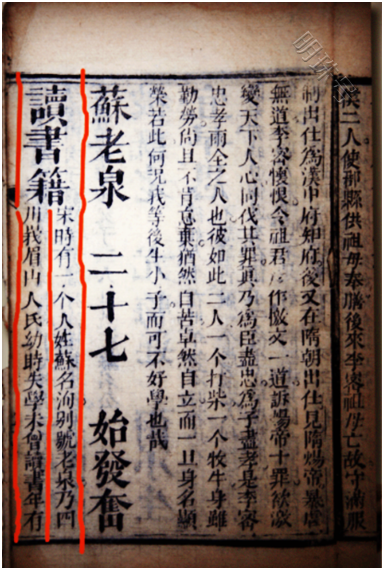 漢二人使郡縣供祖母奉膳後來李密祖母亡故守滿服
制出仕為漢中府知府後又在隋朝出仕見隋煬帝暴虐
無道李密懊恨令祖君彥作檄文一道訴煬帝十罪欲激
變天下人心同伐其罪真乃為臣盡忠為子盡孝是李密
忠孝雨全之人也彼如此二人一個打柴一個牧牛身雖
勤勞尚且不肯怠棄猶然自苦卓然自立而一旦身名顯
榮若此何況我等後生小子而可不好學也哉
蘇老泉 二十七 始發奮
讀書籍
宋時有一个人姓蘇名洵别號老泉乃四
川峩眉山人民幼時失學未曾讀書年有
明珠